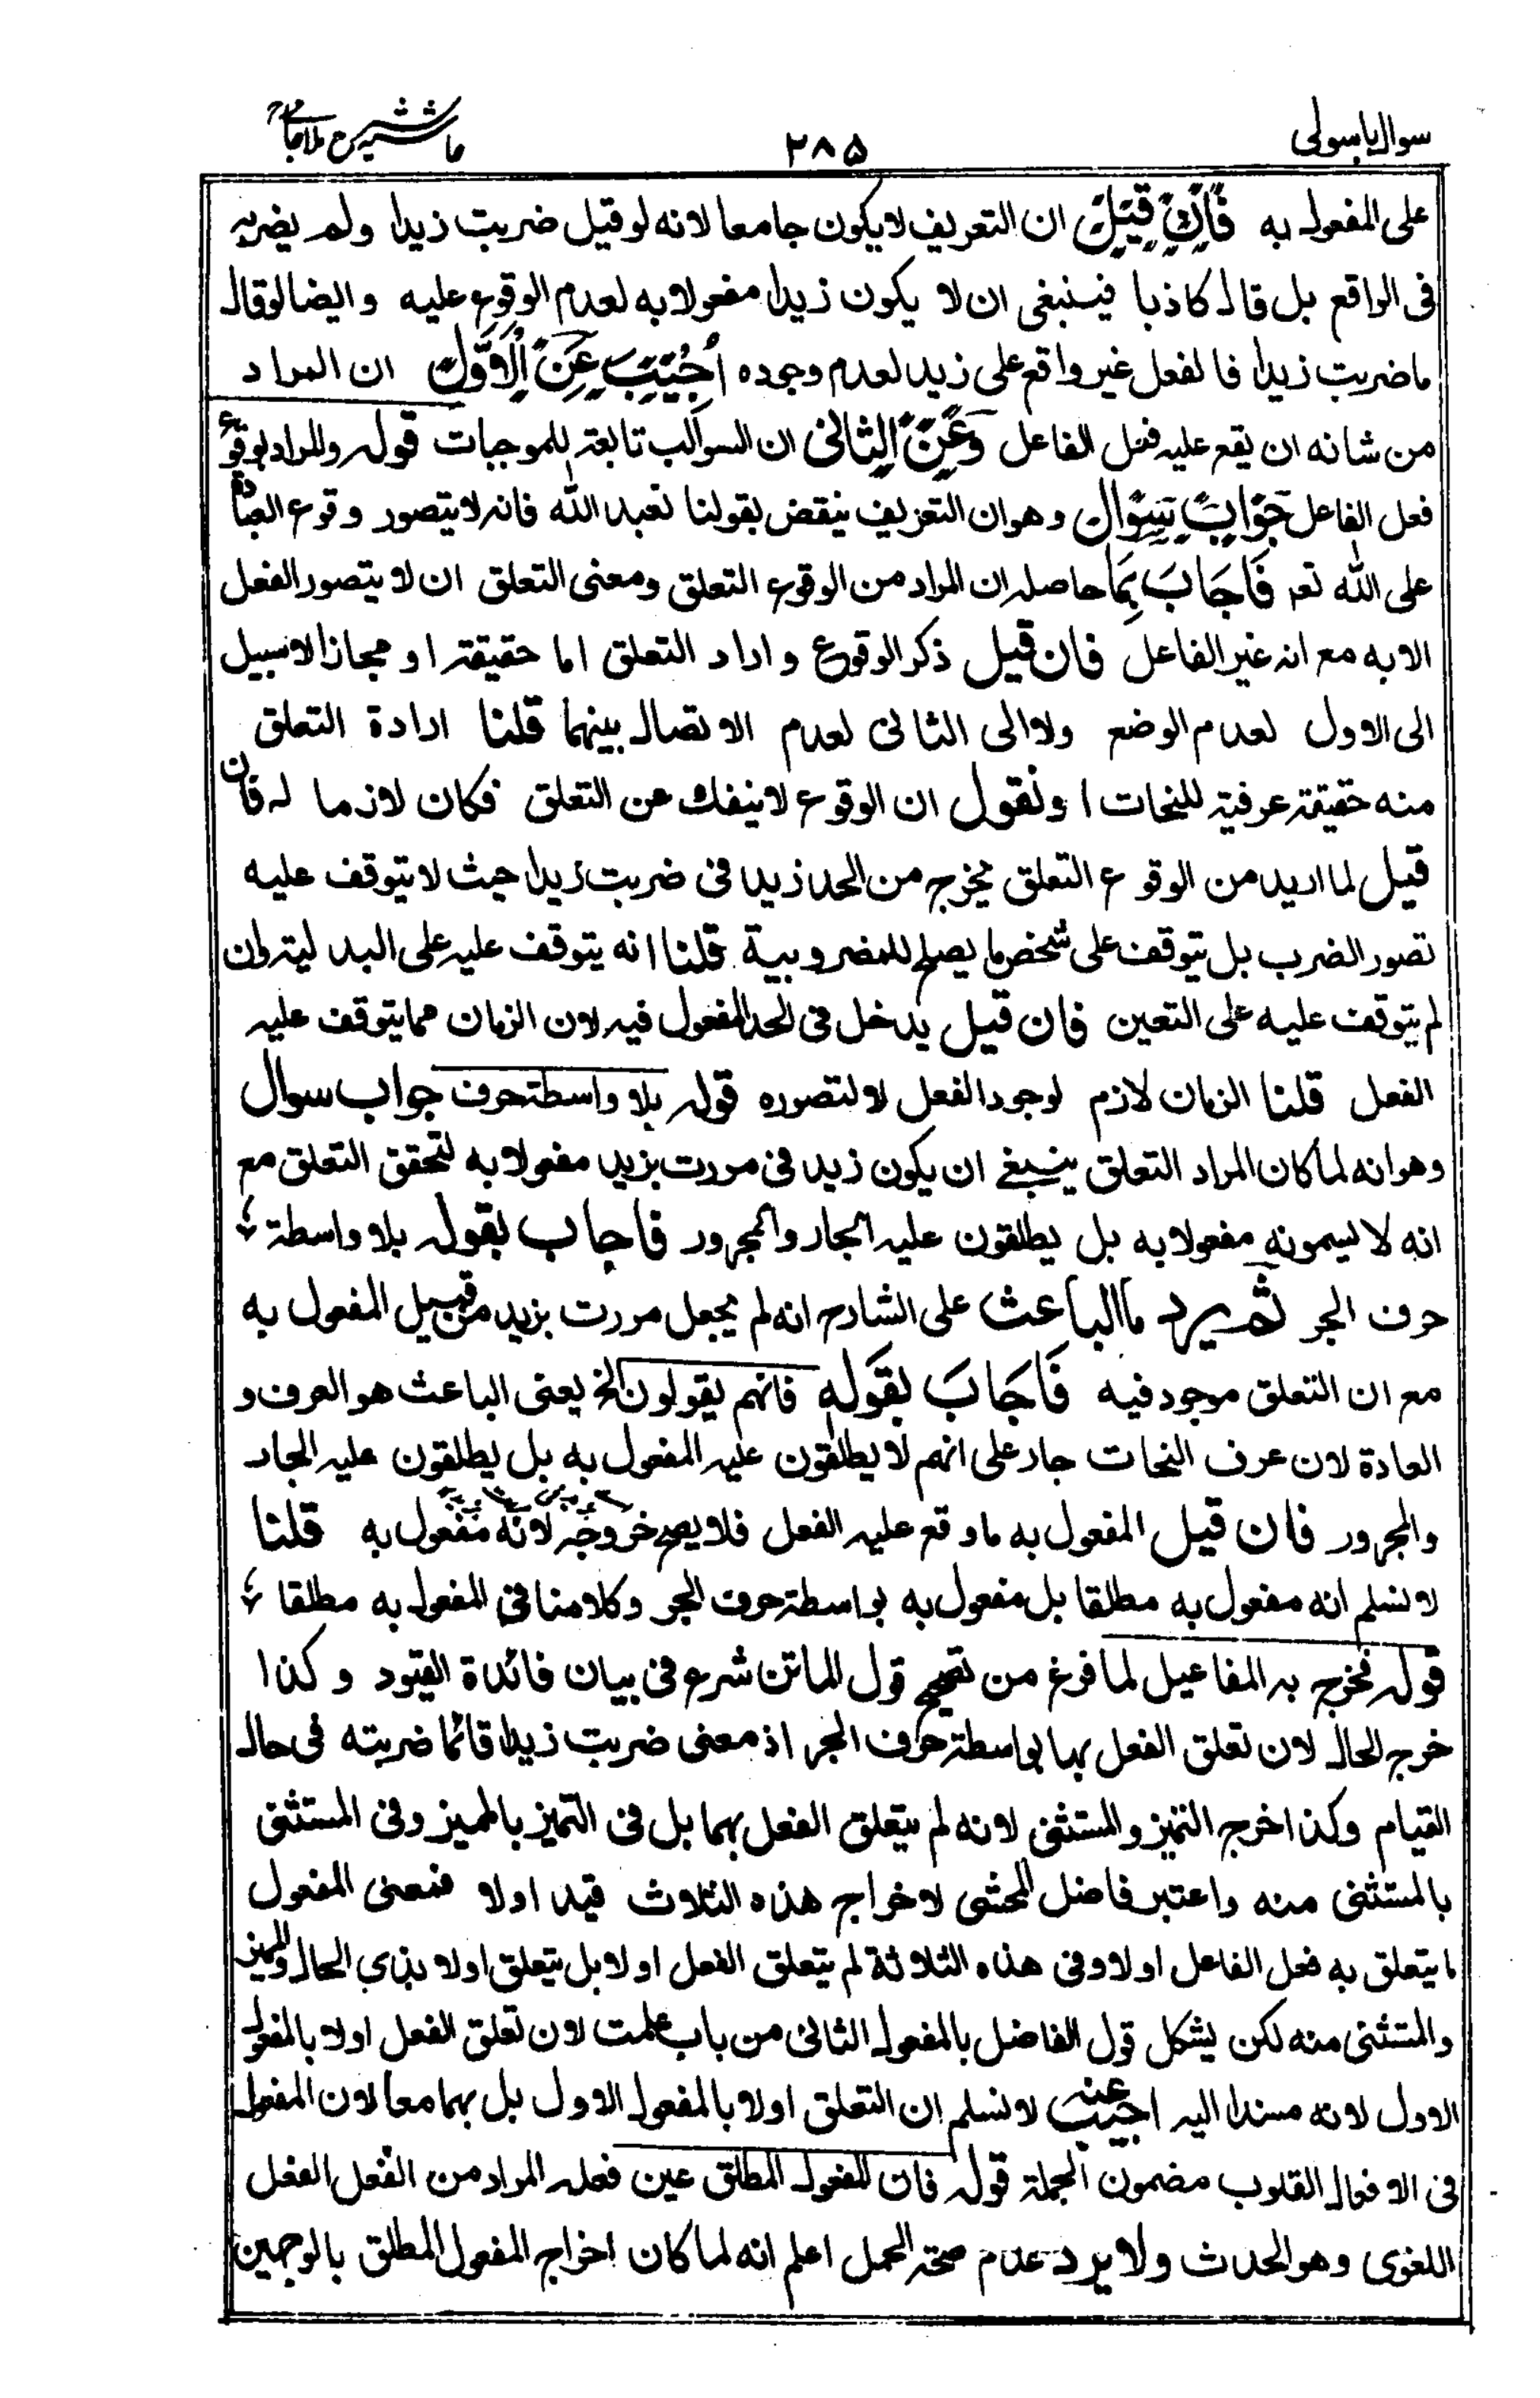 سوال باسولی ٢٨٥ حاشیہ شرح ملا جامی
على المفعول به فَاِنْ قِيْلَ ان التعريف لا يكون جامعا لانه لو قيل ضربت زيدا ولم يضربه
فى الواقع بل قال كاذبا فينبغى ان لا يكون زيدا مفعولا به لعدم الوقوع عليه وايضا لو قال
ما ضربت زيدا فالفعل غير واقع على زيد لعدم وجوده اُجِيْبَ عَنِ الْاَوَّلِ ان المراد
من شانه ان يقع عليه فعل الفاعل وَعَنِ الثانى ان السوالب تابعة للموجبات قوله والمراد بوقوع
فعل الفاعل جَوَابُ سَوَال وهو ان التعريف ينقض بقولنا نعبد الله فانه لا يتصور وقوع العبادة
على الله تعـ فَاَجَابَ بِمَا حاصله ان المراد من الوقوع التعلق ومعنى التعلق ان لا يتصور الفعل
الا به مع انه غير الفاعل فان قيل ذكر الوقوع واراد التعلق اما حقيقة او مجازا لا سبيل
الى الاول لعدم الوضع ولا الى الثانى لعدم الاتصال بينهما قلنا ارادة التعلق
منه حقيقة عرفية للنحات او نقول ان الوقوع لا ينفك عن التعلق فكان لازما له فان
قيل لما اريد من الوقوع التعلق يخرج من الحد زيد فى ضربت زيدا حيث لا يتوقف عليه
تصور الضرب بل يتوقف على شخص ما يصلح للمضروبية قلنا انه يتوقف عليه على البدلية وان
لم يتوقف عليه على التعين فان قيل يدخل فى الحد المفعول فيه لان الزمان مما يتوقف عليه
الفعل قلنا الزمان لازم لوجود الفعل لا لتصوره قوله بلا واسطة حرف جواب سوال
وهو انه لما كان المراد التعلق ينبغى ان يكون زيد فى مررت بزيد مفعولا به لتحقق التعلق مع
انه لا يسمونه مفعولا به بل يطلقون عليه الجار والمجرور فاجاب بقوله بلا واسطة
حرف الجر ثم يرد ما الباعث على الشارح انه لم يجعل مررت بزيد من قبيل المفعول به
مع ان التعلق موجود فيه فَاَجَابَ بقَوله فانهم يقولون الخ يعنى الباعث هو العرف و
العادة لان عرف النحات جار على انهم لا يطلقون عليه المفعول به بل يطلقون عليه الجار
والمجرور فان قيل المفعول به ما وقع عليه الفعل فلا يصح خروجه لانه مفعول به قلنا
لا نسلم انه مفعول به مطلقا بل مفعول به بواسطة حرف الجر وكلامنا فى المفعول به مطلقا
قوله فخرج به المفاعيل لما فرغ من تصحيح قول الماتن شرع فى بيان فائدة القيود وكذا
خرج الحال لان تعلق الفعل بها بواسطة حرف الجر اذ معنى ضربت زيدا قائما ضربته فى حال
القيام وكذا خرج التميز والمستثنى لانه لم يتعلق الفعل بهما بل فى التميز بالمميز وفى المستثنى
بالمستثنى منه واعتبر فاضل المحشى لاخراج هذه الثلاث قيد اولا فمعنى المفعول
ما يتعلق به فعل الفاعل اولا وفى هذه الثلاثة لم يتعلق الفعل اولا بل يتعلق اولا بذى الحال والمميز
والمستثنى منه لكن يشكل قول الفاضل بالمفعول الثانى من باب علمت لان تعلق الفعل اولا بالمفعول
الاول لانه مسندا اليه اجيب عنه لا نسلم ان التعلق اولا بالمفعول الاول بل بهما معا لان المفعول
فى الافعال القلوب مضمون الجملة قوله فان المفعول المطلق عين فعله المراد من الفعل الفعل
اللغوى وهو الحدث ولا يرد عدم صحة الحمل اعلم انه لما كان اخراج المفعول المطلق بالوجهين